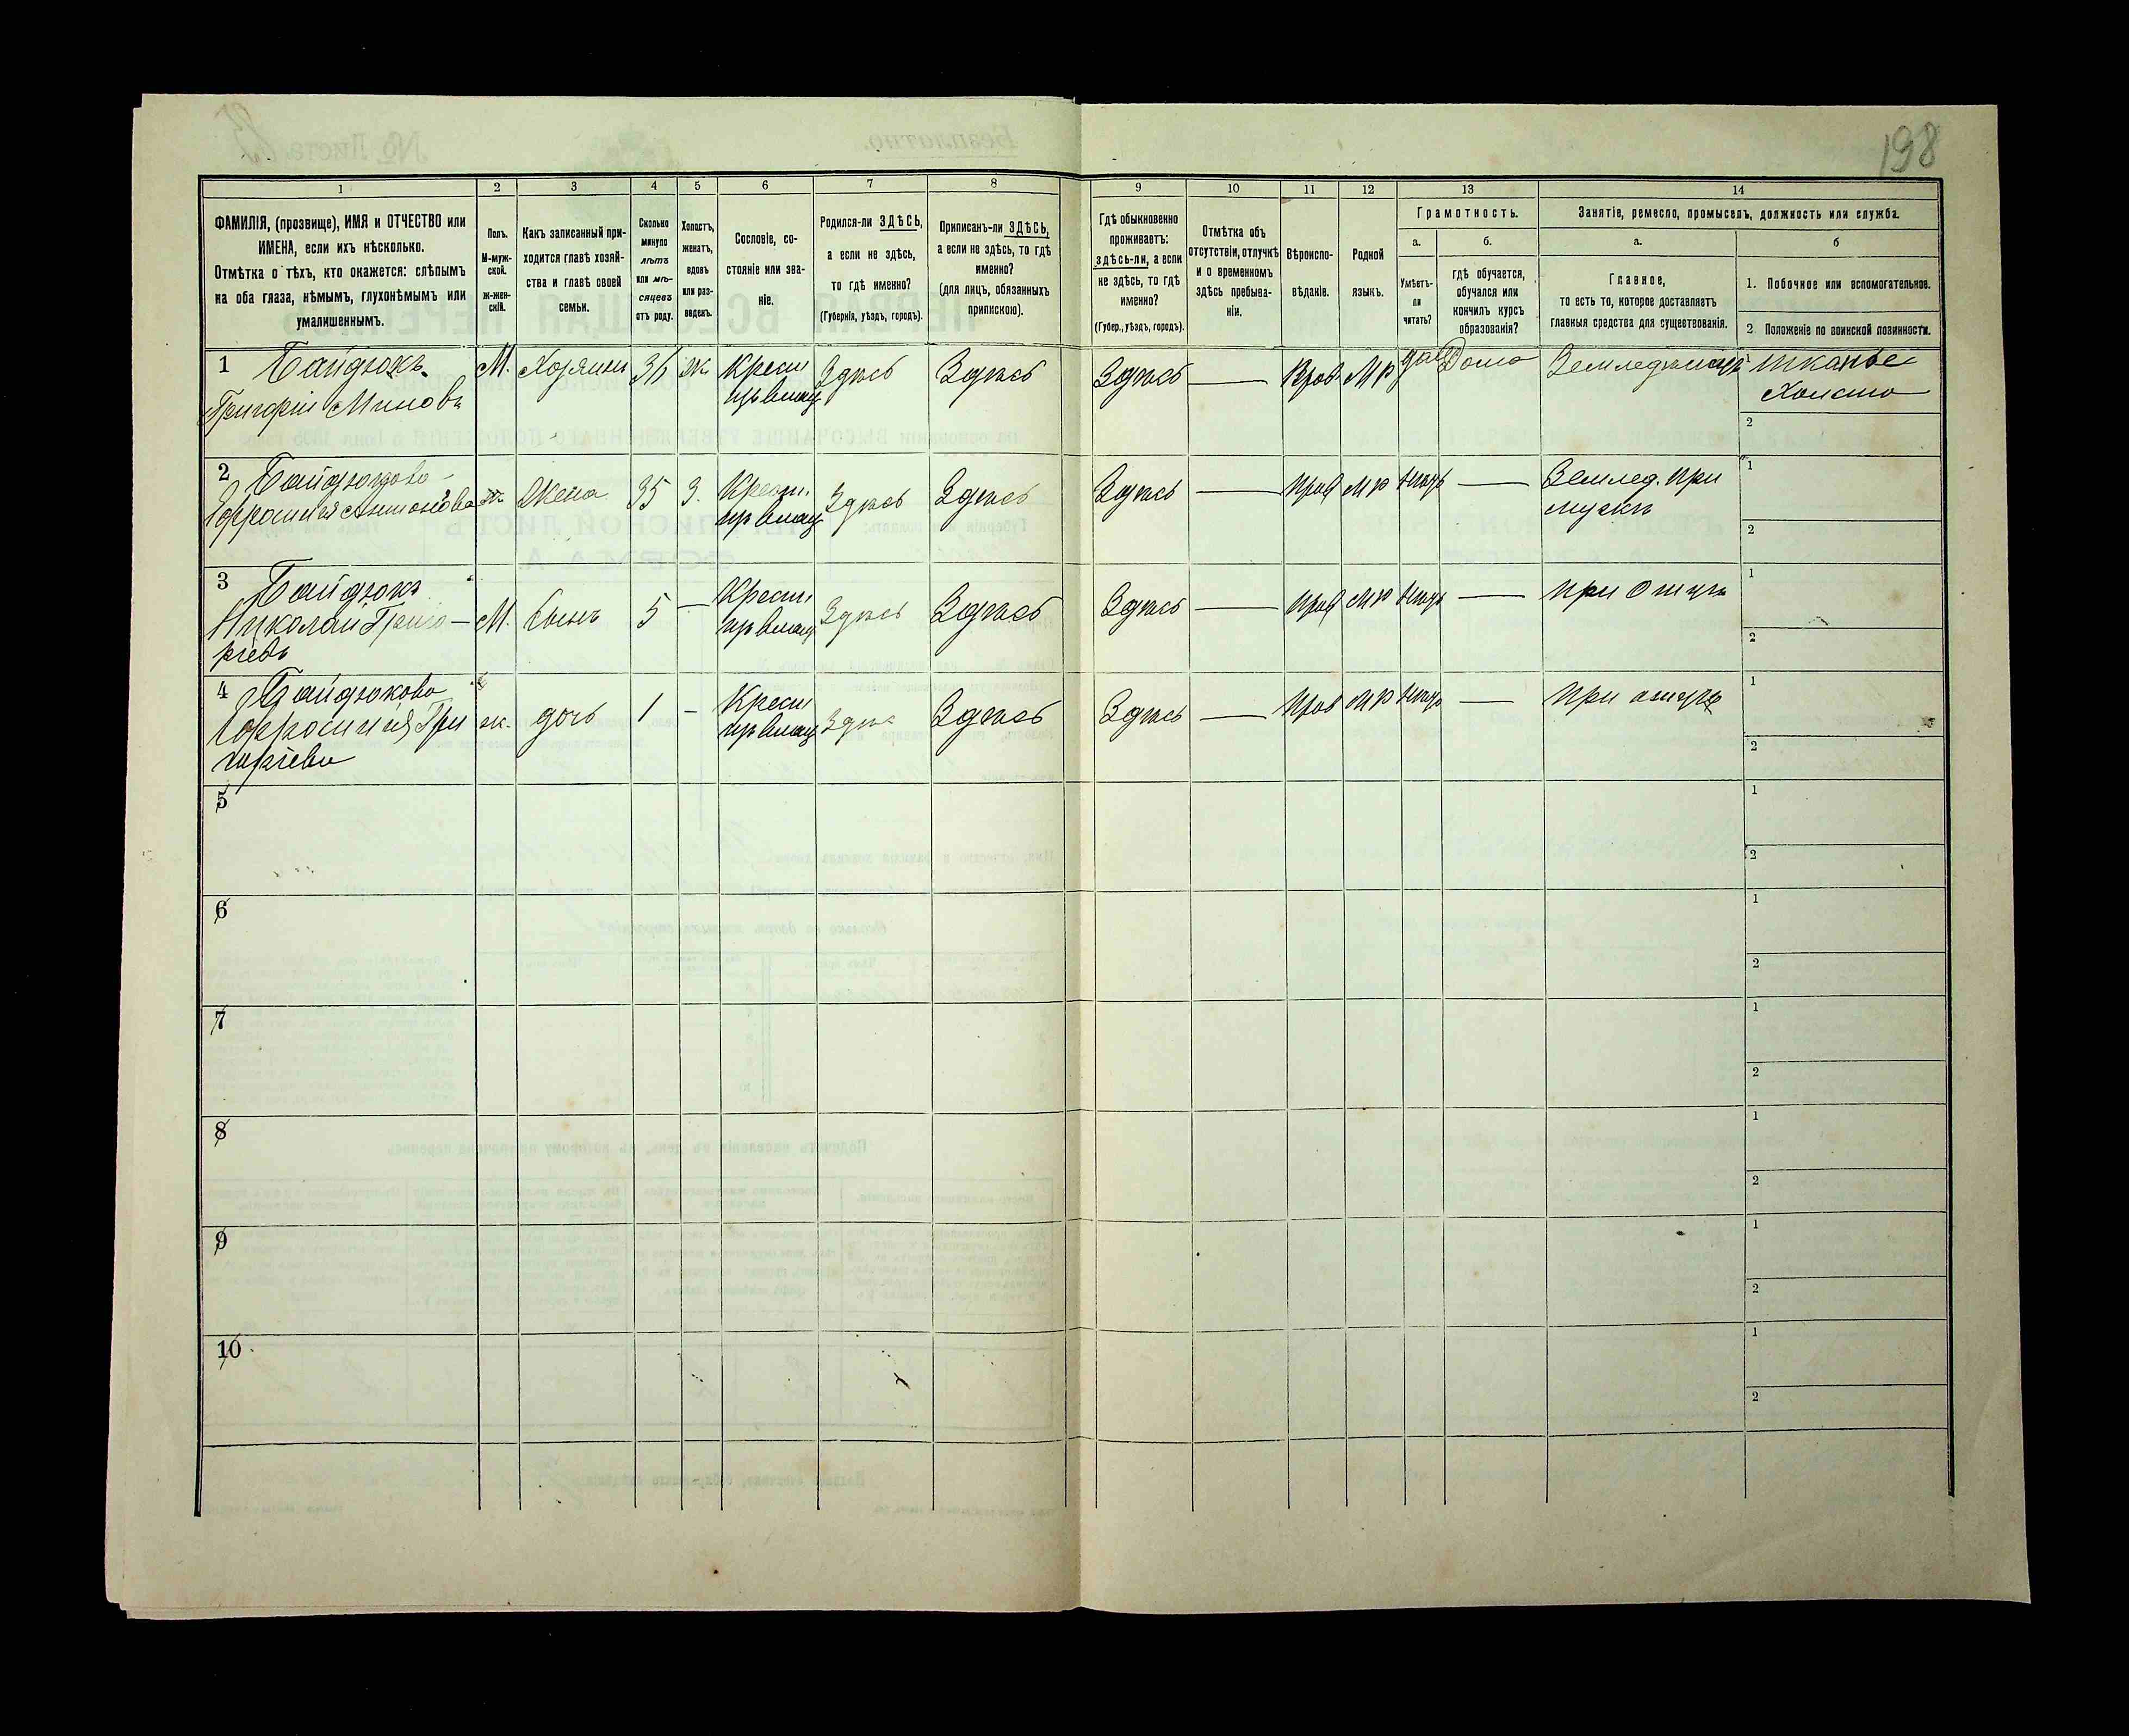 198
1 2 3 4 5 6 7 8 9 10 11 12 13 14
ФАМИЛІЯ, (прозвище), ИМЯ и ОТЧЕСТВО или
ИМЕНА, если ихъ нѣсколько.
Отмѣтка о тѣхъ, кто окажется: слѣпымъ
на оба глаза, нѣмымъ, глухонѣмымъ или
умалишеннымъ.
Полъ.
М-муж-
ской.
ж-жен-
скій.
Какъ записанный при-
ходится главѣ хозяй-
ства и главѣ своей
семьи.
Сколько
минуло
лѣтъ
или мѣ-
сяцевъ
отъ роду.
Холостъ,
женатъ,
вдовъ
или раз-
веденъ.
Сословіе, со-
стояніе или зва-
ніе.
Родился-ли ЗДѢСЬ,
а если не здѣсь,
то гдѣ именно?
(Губернія, уѣздъ, городъ).
Приписанъ-ли ЗДѢСЬ,
а если не здѣсь, то гдѣ
именно?
(для лицъ, обязанныхъ
припискою).
Гдѣ обыкновенно
проживаетъ:
здѣсь-ли, а если
не здѣсь, то гдѣ
именно?
(Губер., уѣздъ, городъ).
Отмѣтка объ
отсутствіи, отлучкѣ
и о временномъ
здѣсь пребыва-
ніи.
Вѣроиспо-
вѣданіе.
Родной
языкъ.
Грамотность.
а.
Умѣетъ-
ли
читать?
б.
гдѣ обучается,
обучался или
кончилъ курсъ
образованія?
Занятіе, ремесло, промыселъ, должность или служба.
а.
Главное,
то есть то, которое доставляетъ
главныя средства для существованія.
б
1. Побочное или вспомогательное.
2 Положеніе по воинской повинности.
1 Байдюкъ М. Хозяинъ 36 Ж. Крест Здѣсь Здѣсь Здѣсь — Прав. МР да Дома Земледѣлецъ тканье
Григорій Миновъ из влад Холста
2
2 Байдюкова ж Жена 35 З. Крест. Здѣсь Здѣсь Здѣсь — прав МР нѣтъ — Землед. при 1
Ефросинія Антонова из влад мужѣ
2
3 Байдюкъ М. Сынъ 5 — Крест Здѣсь Здѣсь Здѣсь — прав МР нѣтъ — при отцѣ 1
Николай Григо- из влад
ріевъ 2
4 Байдюкова ж. дочь 1 — Крест Здѣсь Здѣсь Здѣсь — прав МР нѣтъ — при отцѣ 1
Ефросинія Гри из влад
горіева 2
5 1
2
6 1
2
7 1
2
8 1
2
9 1
2
10 1
2